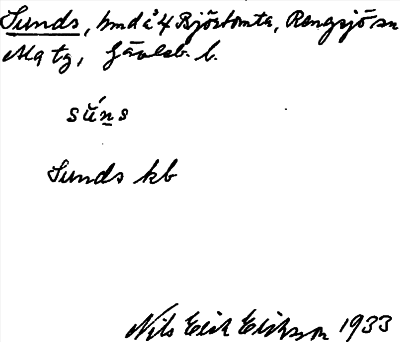 Sunds, hmd å 4 Björtomta, Rengsjö sn
Ala tg, Gävleb. l.
sú̆n̲s
Sunds kb
Nils Erik Eriksson 1933